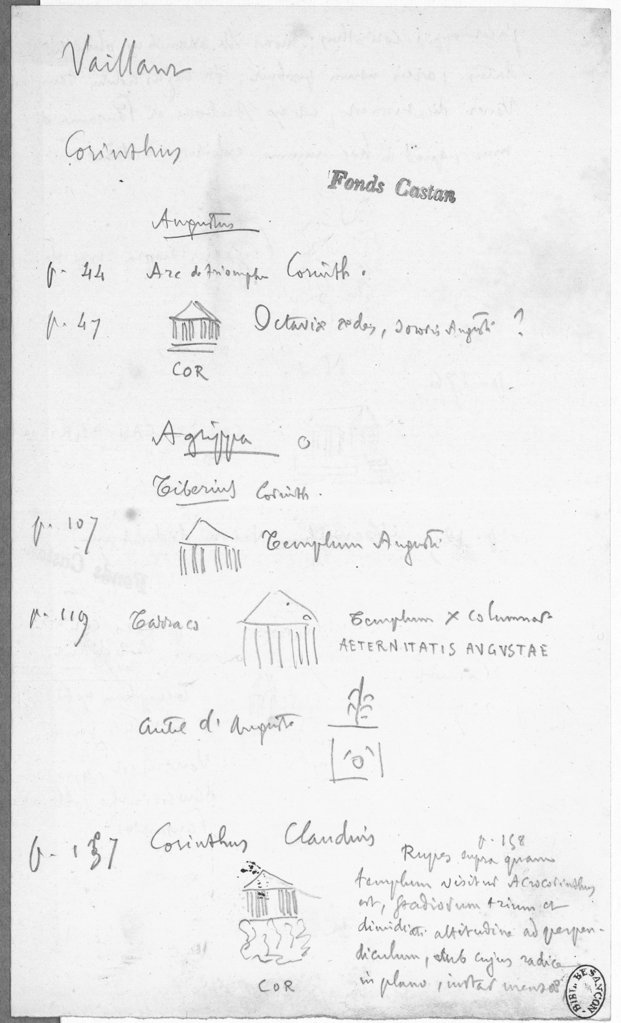 Vaillant
Corinthus
Fonds Castan
Augustus
p. 44 Arc de triomphe Corinth.
p. 47 Octaviæ ædes, sororis Augusti ?
COR
Agrippa o
Tiberius Corinth.
p. 107 Templum Augusti
p. 119 Tarraco Templum X columnar
AETERNITATIS AVGVSTAE
autel d'Auguste
p. 137 Corinthus Claudius
p. 138
Rupes supra quam
templum visitur Acrocorinthus
est, stadiorum trium et
dimidii altitudine ad perpen-
diculum, sub cujus radice
in plano, instar mensæ
COR
BIBL. BESANCON